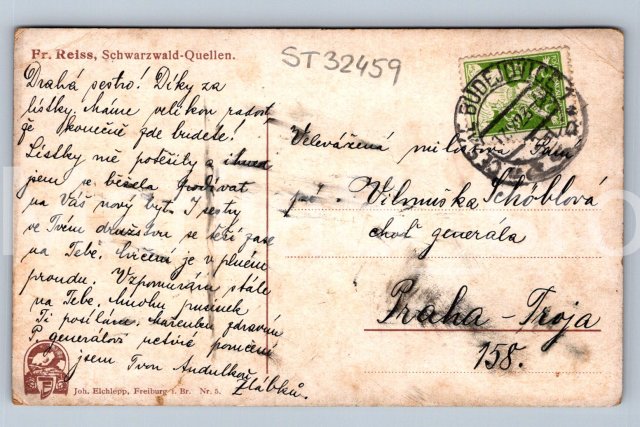 Fr. Reiss, Schwarzwald-Quellen.
ST32459
Drahá sestro! Díky za
lístky. Máme velikou radost
že konečně zde budete!
Lístky mě potěšily a ihned
jsem se běžela podívat
na Váš nový byt. I sestry
ve Tvém družstvu se těší zase
na Tebe. Cvičení je v plném
proudu. Vzpomínám stále
na Tebe. Mnoho pusinek
Ti posílám. Mařenku zdravím
P. generálovi uctivé poručení
jsem Tvou Andulkou
Zlábků.
BUDĚJOVICE
Velevážená milostivá Paní
pí. Vilmuška Schöblová
choť generála
Praha-Troja
158.
Joh. Elchlepp, Freiburg i. Br. Nr. 5.